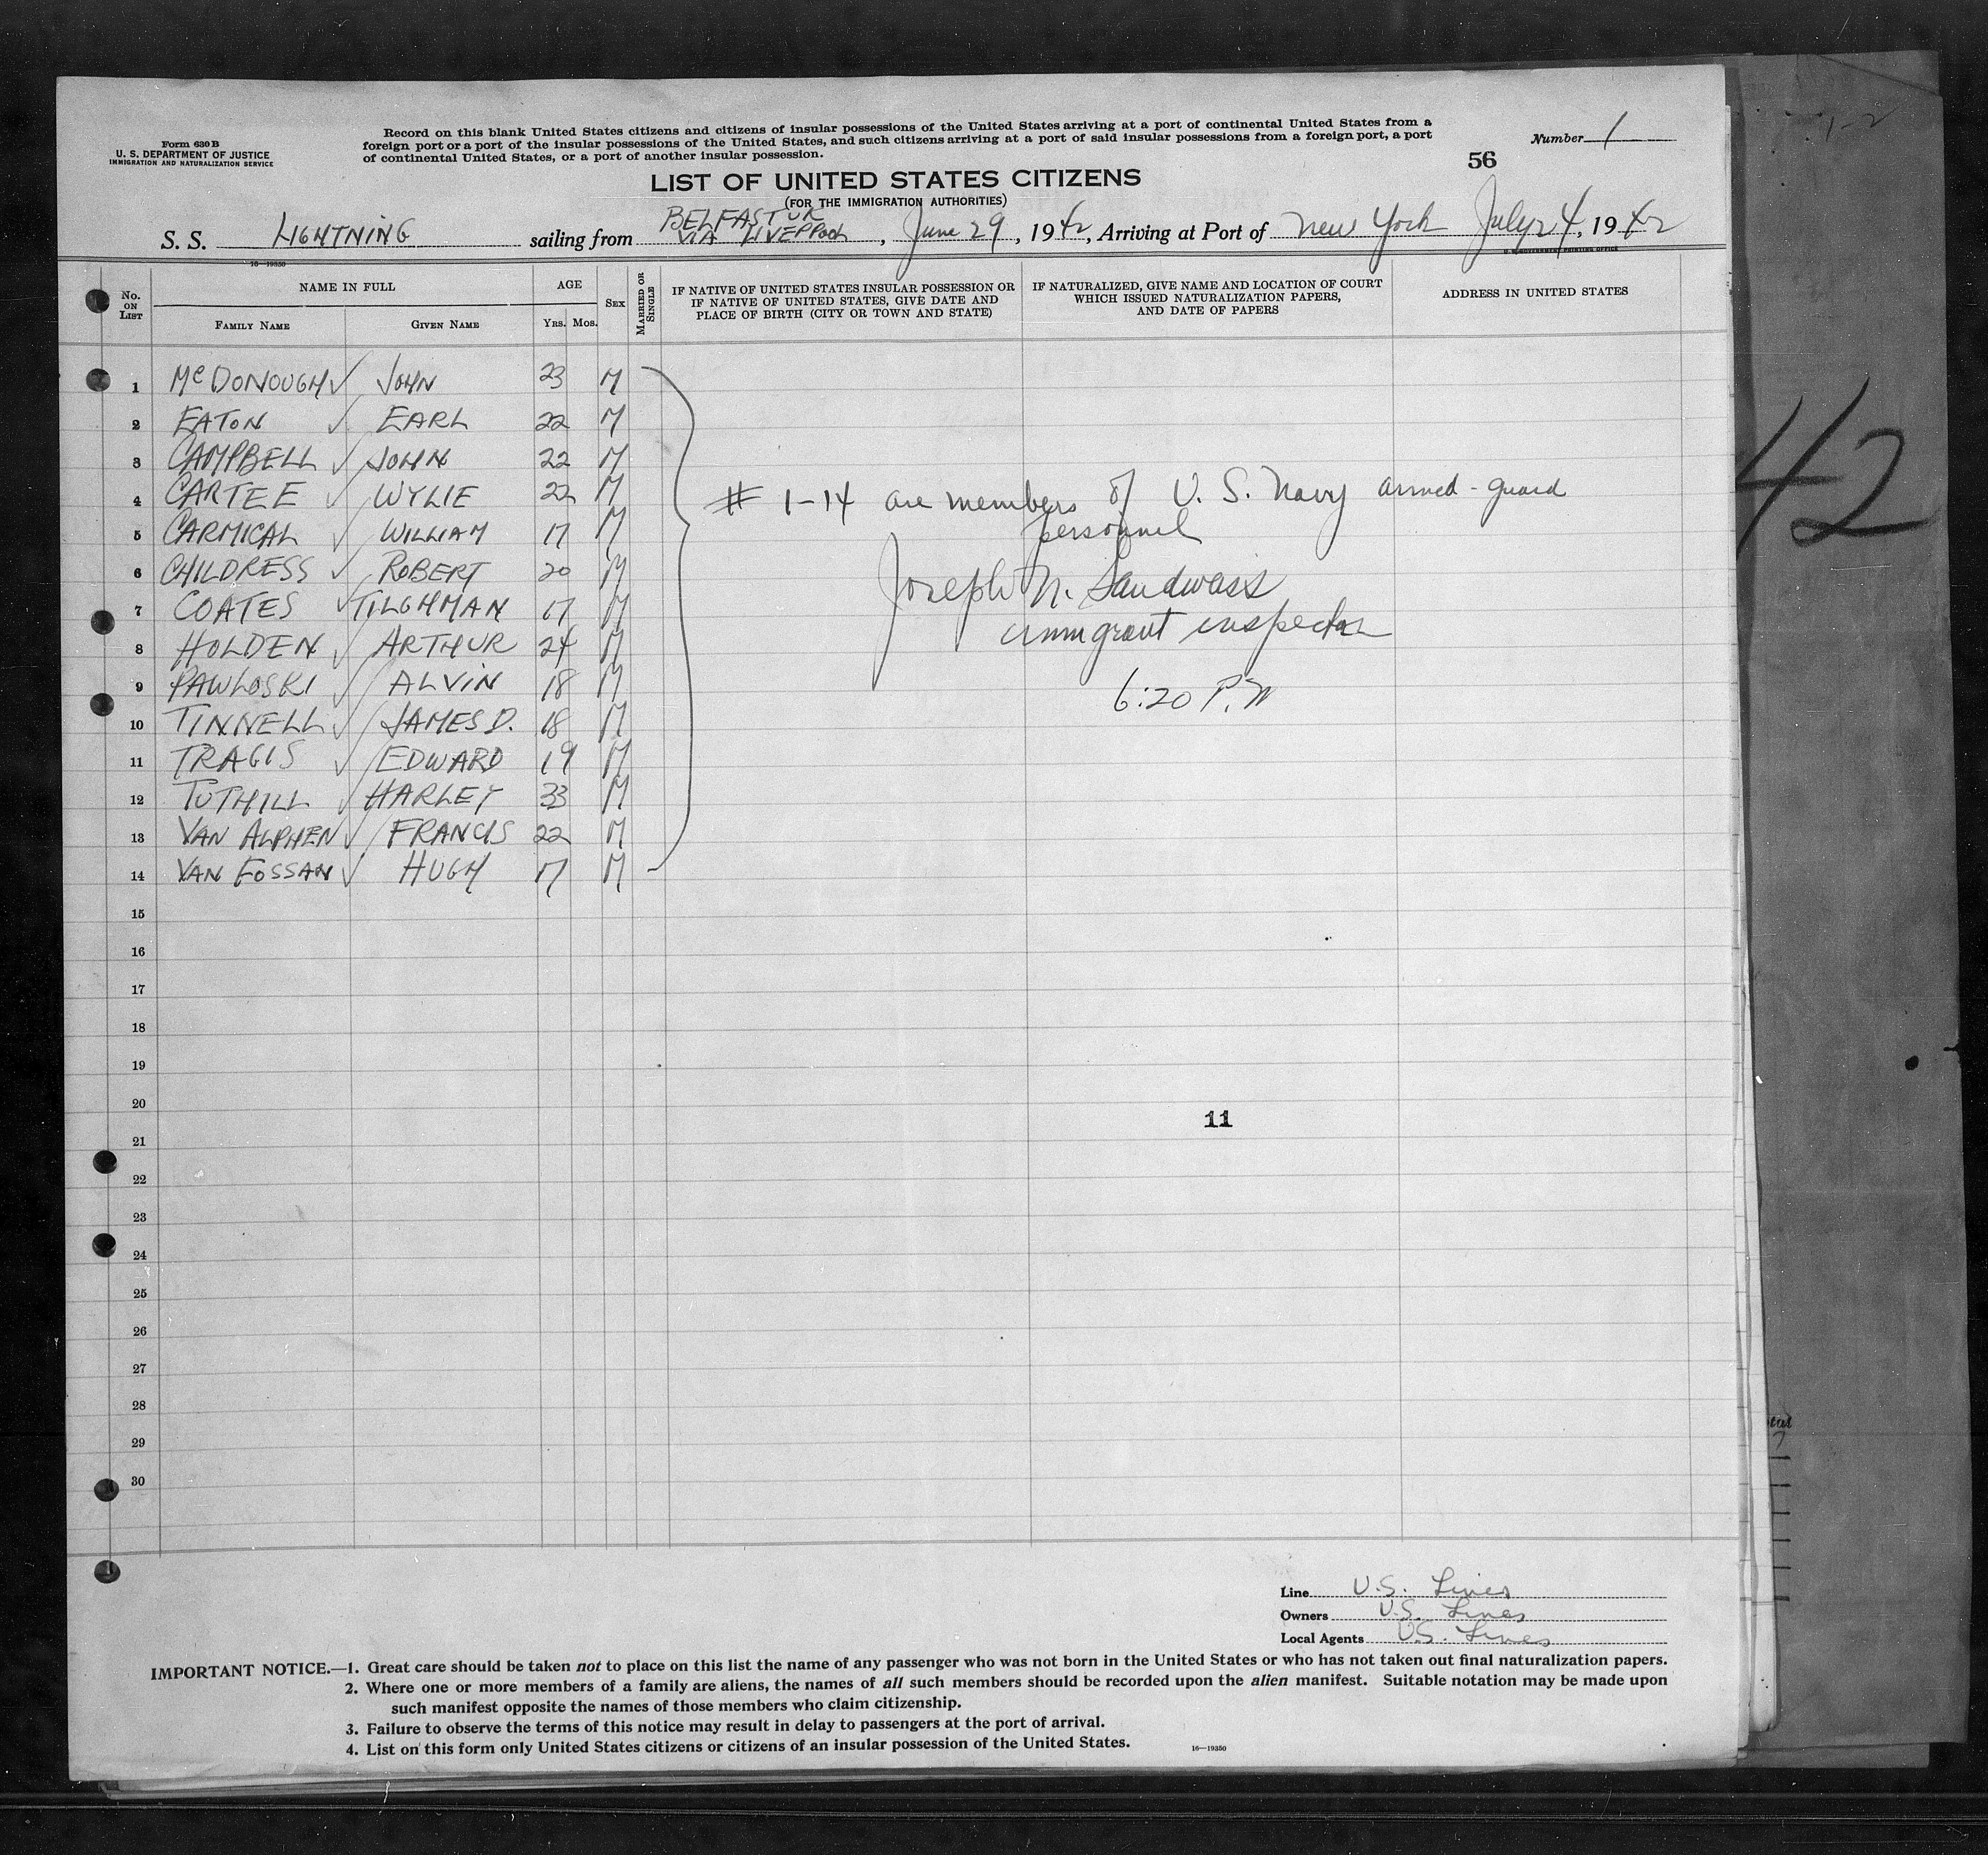 Form 630 B
U. S. DEPARTMENT OF JUSTICE
IMMIGRATION AND NATURALIZATION SERVICE
Record on this blank United States citizens and citizens of insular possessions of the United States arriving at a port of continental United States from a
foreign port or a port of the insular possessions of the United States, and such citizens arriving at a port of said insular possessions from a foreign port, a port
of continental United States, or a port of another insular possession.
Number 1
1-2
56
LIST OF UNITED STATES CITIZENS
(FOR THE IMMIGRATION AUTHORITIES)
S. S. LIGHTNING sailing from BELFAST UK VIA LIVERPOOL, June 29, 1942, Arriving at Port of New York July 24, 1942
16—19350
U. S. GOVERNMENT PRINTING OFFICE
No. ON LIST
NAME IN FULL
FAMILY NAME
GIVEN NAME
AGE
YRS. MOS.
SEX
MARRIED OR SINGLE
IF NATIVE OF UNITED STATES INSULAR POSSESSION OR
IF NATIVE OF UNITED STATES, GIVE DATE AND
PLACE OF BIRTH (CITY OR TOWN AND STATE)
IF NATURALIZED, GIVE NAME AND LOCATION OF COURT
WHICH ISSUED NATURALIZATION PAPERS,
AND DATE OF PAPERS
ADDRESS IN UNITED STATES
1 McDONOUGH ✓ JOHN 23 M
2 EATON ✓ EARL 22 M
3 CAMPBELL ✓ JOHN 22 M
4 CARTEE ✓ WYLIE 22 M
5 CARMICAL ✓ WILLIAM 17 M
6 CHILDRESS ✓ ROBERT 20 M
7 COATES ✓ TILGHMAN 17 M
8 HOLDEN ✓ ARTHUR 24 M
9 PAWLOSKI ✓ ALVIN 18 M
10 TINNELL ✓ JAMES D. 18 M
11 TRAGIS ✓ EDWARD 19 M
12 TUTHILL ✓ HARLEY 33 M
13 VAN ALPHEN ✓ FRANCIS 22 M
14 VAN FOSSAN ✓ HUGH 17 M
# 1-14 are members of U. S. Navy armed-guard
personnel
Joseph N. Landwass
immigrant inspector
6:20 P.M
42
15
16
17
18
19
20
11
21
22
23
24
25
26
27
28
29
30
Line U.S. Lines
Owners U.S. Lines
Local Agents U.S. Lines
IMPORTANT NOTICE.—1. Great care should be taken not to place on this list the name of any passenger who was not born in the United States or who has not taken out final naturalization papers.
2. Where one or more members of a family are aliens, the names of all such members should be recorded upon the alien manifest. Suitable notation may be made upon
such manifest opposite the names of those members who claim citizenship.
3. Failure to observe the terms of this notice may result in delay to passengers at the port of arrival.
4. List on this form only United States citizens or citizens of an insular possession of the United States.
16—19350